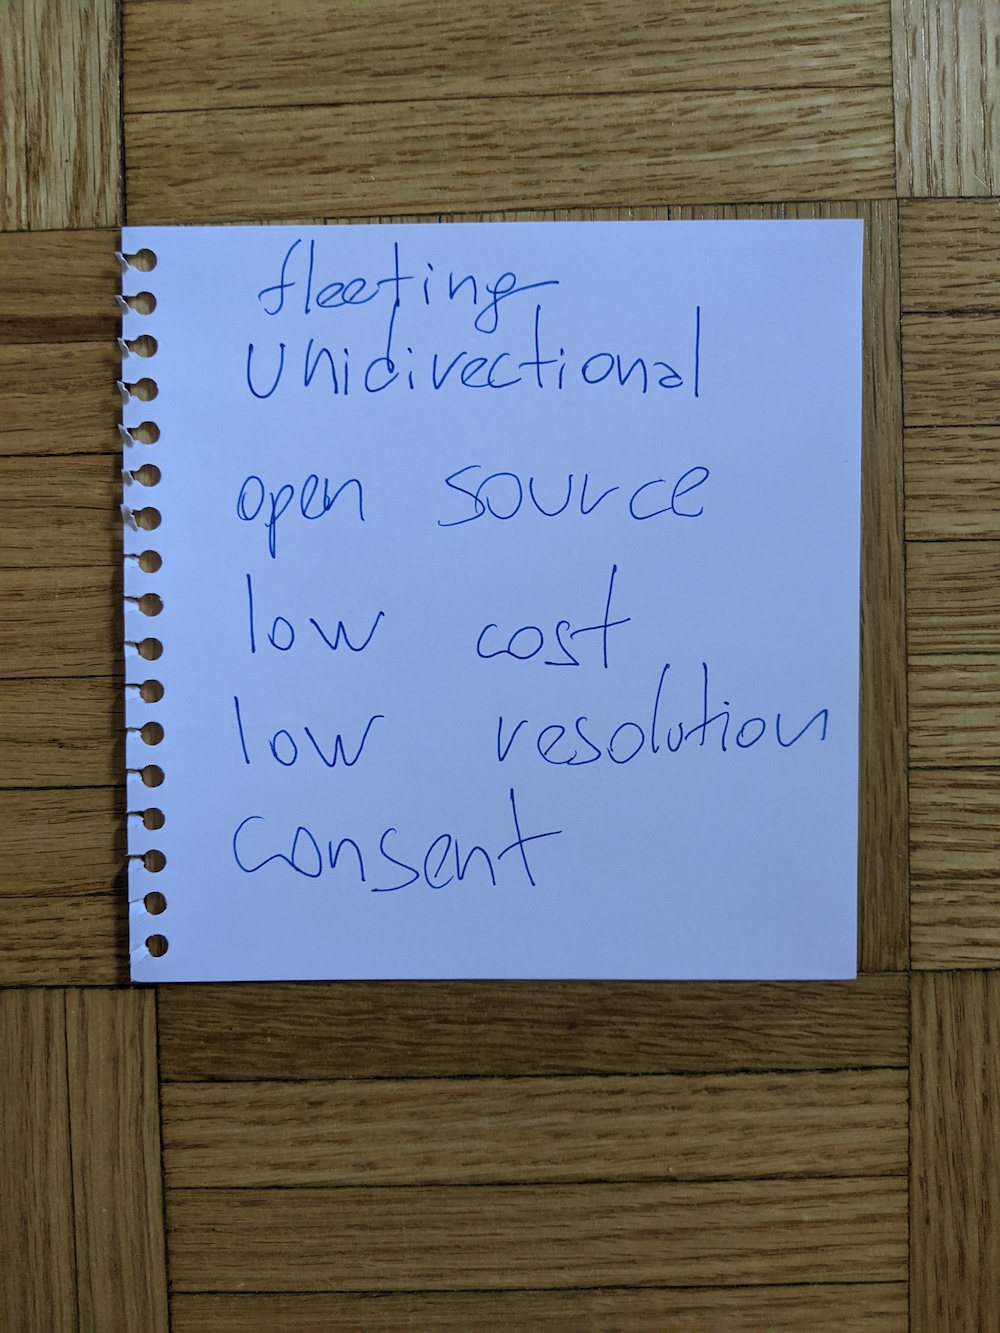 fleeting
unidirectional
open source
low cost
low resolution
consent